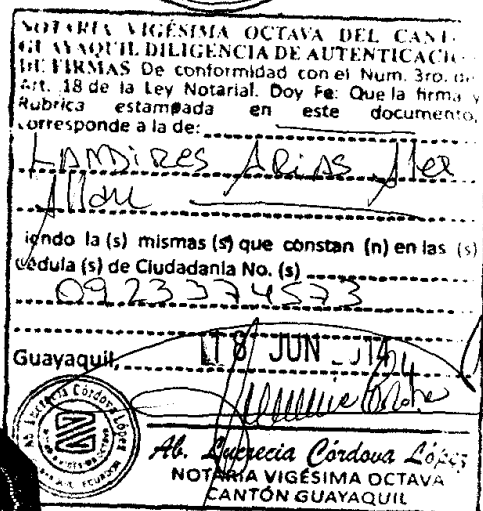 NOTARIA VIGÉSIMA OCTAVA DEL CANT
GUAYAQUIL DILIGENCIA DE AUTENTICACIO
DE FIRMAS De conformidad con el Num. 3ro. de
Art. 18 de la Ley Notarial. Doy Fe: Que la firma y
Rubrica estampada en este documento,
corresponde a la de:
LANDIRES ARIAS Alex
Allan
iendo la (s) mismas (s) que constan (n) en las (s)
cédula (s) de Ciudadania No. (s)
0923374573
Guayaquil, 18 JUN
Ab. Lucrecia Córdova López
NOTARIA VIGÉSIMA OCTAVA
CANTÓN GUAYAQUIL
Ab. Lucrecia Córdova López